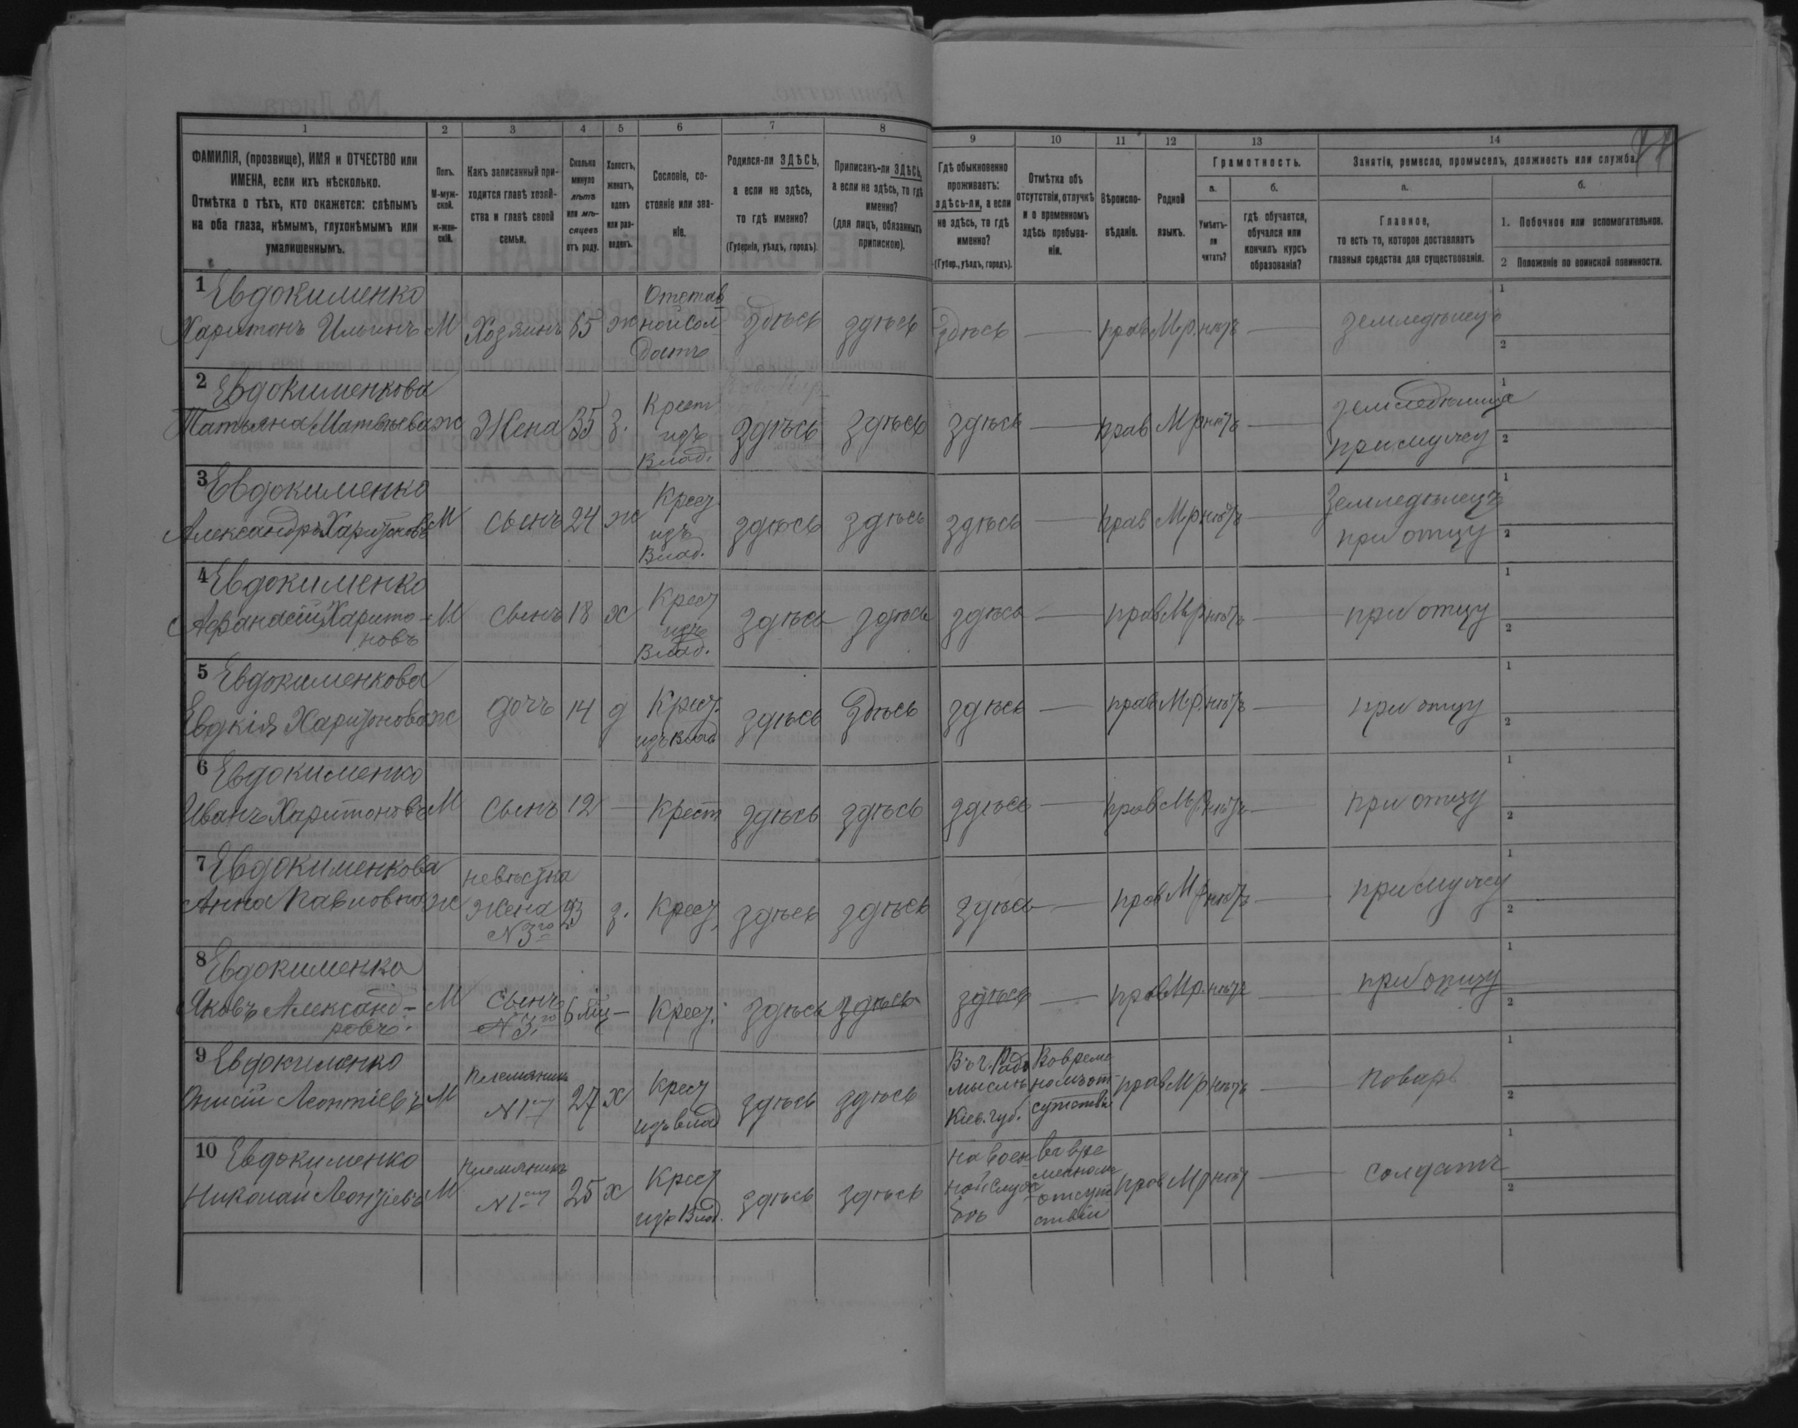 1 2 3 4 5 6 7 8 9 10 11 12 13 14
ФАМИЛІЯ, (прозвище), ИМЯ и ОТЧЕСТВО или
ИМЕНА, если ихъ нѣсколько.
Отмѣтка о тѣхъ, кто окажется: слѣпымъ
на оба глаза, нѣмымъ, глухонѣмымъ или
умалишеннымъ.
Полъ.
М-муж-
ской.
ж-жен-
скій.
Какъ записанный при-
ходится главѣ хозяй-
ства и главѣ своей
семьи.
Сколько
минуло
лѣтъ
или мѣ-
сяцевъ
отъ роду.
Холостъ,
женатъ,
вдовъ
или раз-
веденъ.
Сословіе, со-
стояніе или зва-
ніе.
Родился-ли ЗДѢСЬ,
а если не здѣсь,
то гдѣ именно?
(Губернія, уѣздъ, городъ).
Приписанъ-ли ЗДѢСЬ,
а если не здѣсь, то гдѣ
именно?
(для лицъ, обязанныхъ
припискою).
Гдѣ обыкновенно
проживаетъ:
здѣсь-ли, а если
не здѣсь, то гдѣ
именно?
(Губер., уѣздъ, городъ).
Отмѣтка объ
отсутствіи, отлучкѣ
и о временномъ
здѣсь пребыва-
ніи.
Вѣроиспо-
вѣданіе.
Родной
языкъ.
Грамотность.
а.
Умѣетъ-
ли
читать?
б.
гдѣ обучается,
обучался или
кончилъ курсъ
образованія?
Занятіе, ремесло, промыселъ, должность или служба.
а.
Главное,
то есть то, которое доставляетъ
главныя средства для существованія.
б.
1. Побочное или вспомогательное.
2 Положеніе по воинской повинности.
1 Евдокименко
Харитонъ Ильинъ М Хозяинъ ж
Отстав
ной Сол
датъ
здѣсь здѣсь здѣсь — прав М.р. нѣтъ — земледѣлецъ
1
2
2 Евдокименкова
Татьяна Матвѣева ж Жена з.
Крест
изъ
Влад.
здѣсь здѣсь здѣсь — прав М.р нѣтъ —
земледѣлица
при мужу
1
2
3 Евдокименко
Александръ Харитоновъ М сынъ 24 ж
Крест
изъ
Влад.
здѣсь здѣсь здѣсь — прав М.р нѣтъ —
Земледѣлецъ
при отцу
1
2
4 Евдокименко
Афанасій Харито-
новъ
М сынъ 18 х
Крест
изъ
Влад.
здѣсь здѣсь здѣсь — прав М.р нѣтъ — при отцу
1
2
5 Евдокименкова
Евдкія Харитонова ж дочь 14 д
Крест.
изъ Влад
здѣсь здѣсь здѣсь — прав М.р. нѣтъ — при отцу
1
2
6 Евдокименко
Иванъ Харитоновъ М сынъ 12 — Крест здѣсь здѣсь здѣсь — прав М.р нѣтъ — при отцу
1
2
7 Евдокименкова
Анна Павловна ж
невѣстка
жена 23
N 3го
з. Крест. здѣсь здѣсь здѣсь — прав М.р нѣтъ — при мужу
1
2
8 Евдокименко
Яковъ Александ-
ровъ.
М
сынъ
N 3.го
6 мц — Крест. здѣсь здѣсь здѣсь — прав М.р. нѣтъ — при отцу
1
2
9 Евдокименко
Онисій Леонтіевъ М
Племянникъ
N 1
27 х
Крест
изъ влад
здѣсь здѣсь
Въ г. Радо
мыслѣ
Кіев. губ.
Во време
номъ от
сутствіи
прав М.р нѣтъ — поваръ
1
2
10 Евдокименко
Николай Леонтіевъ М
Племянникъ
N 1
25 х
Крест
изъ Влад.
здѣсь здѣсь
на воен
ной служ
бѣ
во вре
менном
отсут
ствіи
прав М.р нѣтъ — солдатъ
1
2